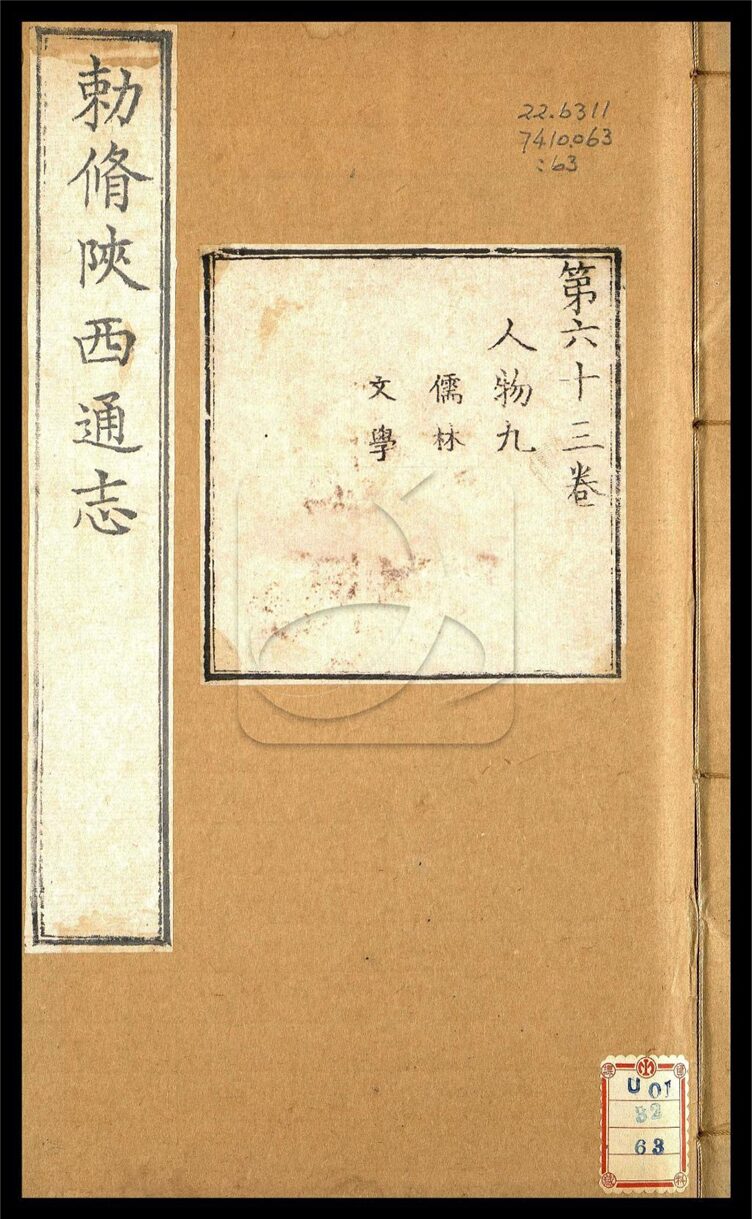 勅脩陝西通志
22.6311
7410.063
:63
第六十三卷
人物九
儒林
文學
U 01
82
63